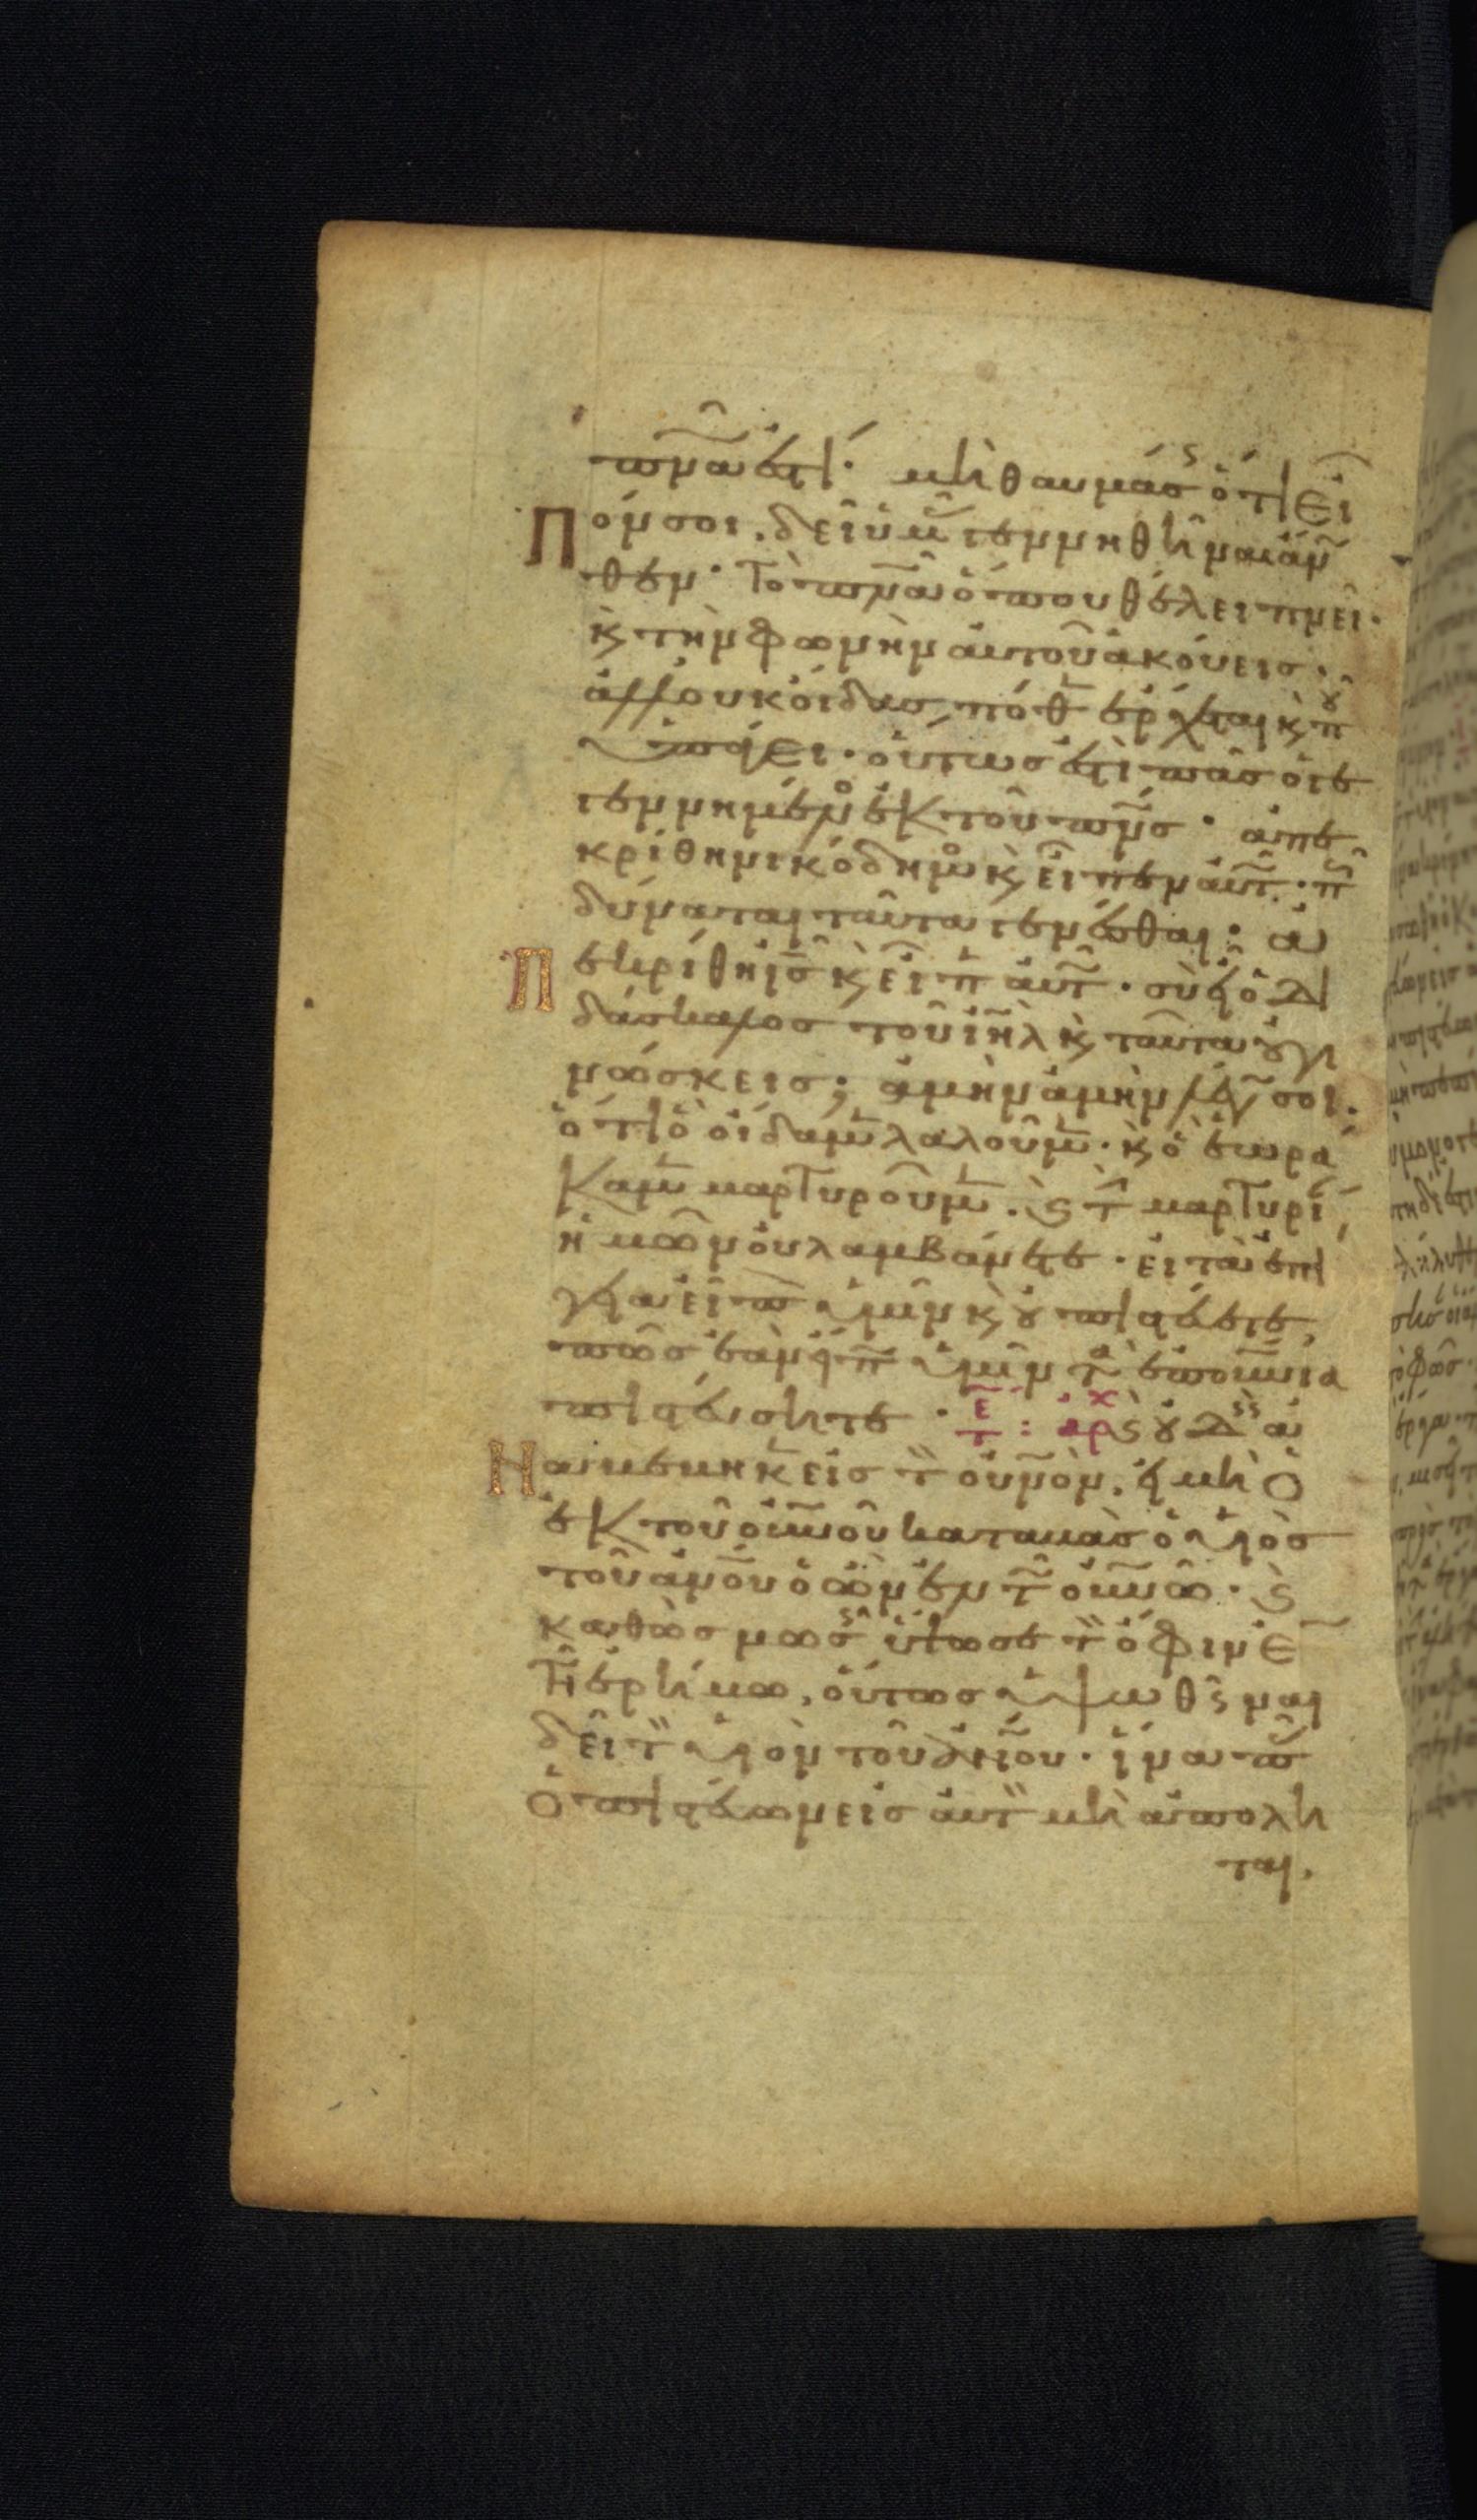 πνᾶ ἐστί· μὴ θαυμάσς ὅτι εἶ
Πόν σοι. δεῖ ὑμᾶς γεννηθῆναι ἄνω
θεν· Τὸ πνᾶ ὅπου θέλει πνεῖ·
κ τὴν φωνὴν αὐτοῦ ἀκούεις·
ἀλλ οὐκ οἶδας πόθ ἔρχεται κ π
ὑπάγει· οὕτως ἐστὶ πᾶς ὁ γε
γεννημένο ἐκ τοῦ πνς· ἀπε
κρίθη νικόδημο κ εἶπεν αὐτ· π
δύναται ταῦτα γενέσθαι; ἀ
Πεκρίθη ἰς κ εἶπ αὐτ· σὺ εἶ ὁ δι
δάσκαλος τοῦ ἰηλ κ ταῦτα οὐ γι
νώσκεις; ἀμὴν ἀμὴν λέγ σοι.
ὅτι ὃ οἴδαμ λαλοῦμ· κ ὃ ἑωρά
καμ μαρτυροῦμ. κ τ μαρτυρί
ἡμῶν οὐ λαμβάνετε· εἰ τὰ ἐπί
γεια εἶπ ὑμῖν κ οὐ πιστεύετε,
πῶς ἐὰν εἴπ ὑμῖν τ ἐπουνια
πιστεύσητε· τε: ἀρχ κ οὐδς ἀ
Ναβέβηκ εἰς τ οὐνὸν. εἰ μὴ ὁ
ἐκ τοῦ οὐνοῦ καταβὰς ὁ υἱὸς
τοῦ ἀνου ὁ ὢν ἐν τ οὐνῶ· κ
καθὼς μωσς ὕψωσε τ ὄφιν ἐ
τῆ ἐρήμω, οὕτως ὑψωθῆναι
δεῖ τ υἱὸν τοῦ ἀνου· ἵνα πᾶς
ὁ πιστεύων εἰς αὐτ μὴ ἀπολη
ται.